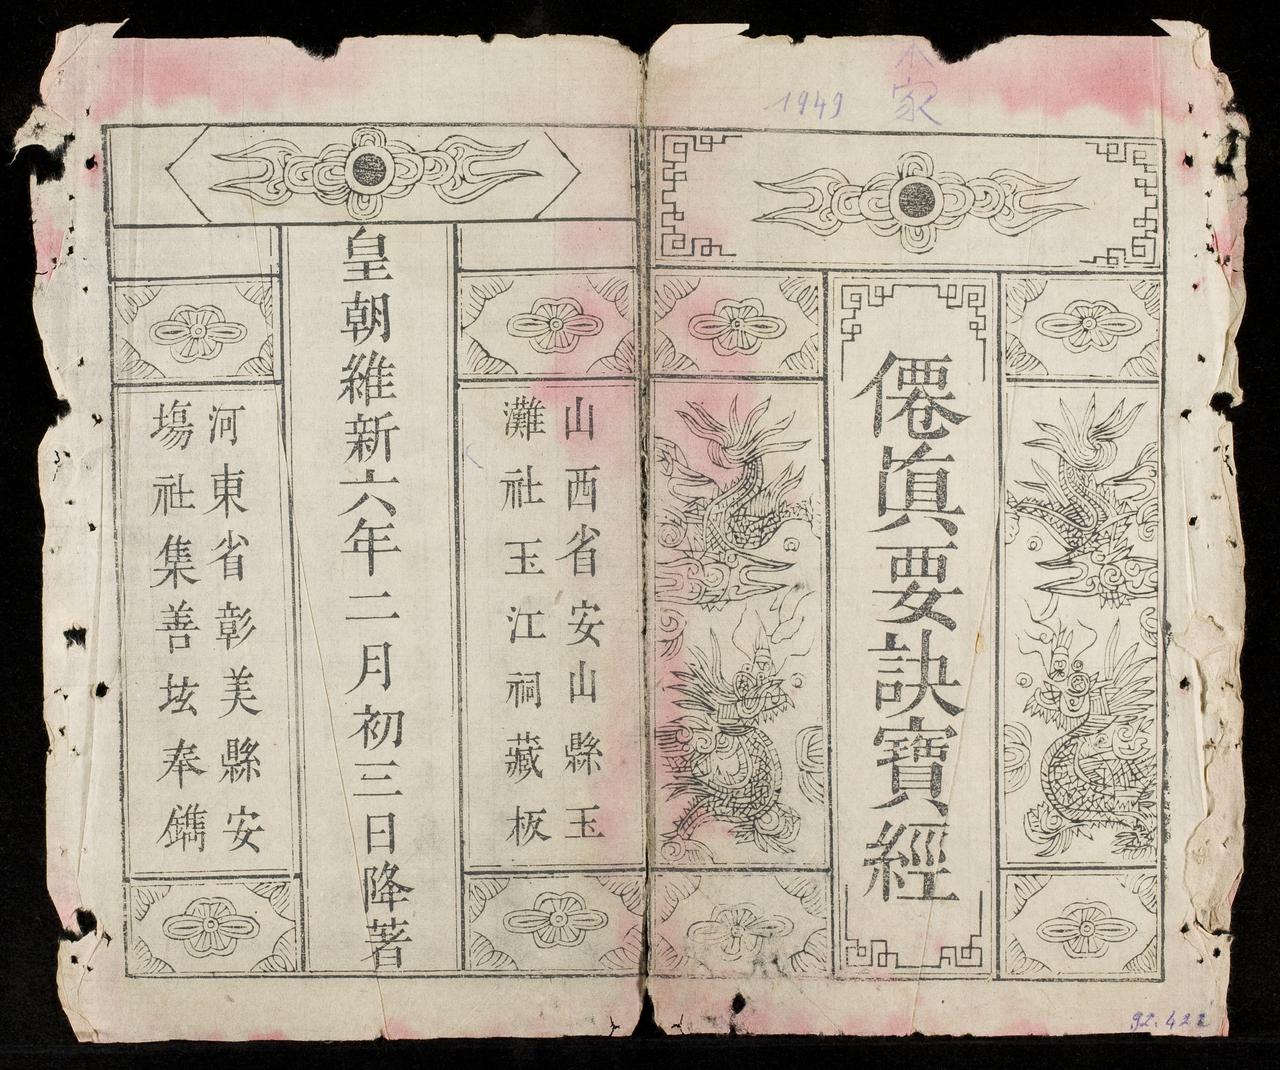 1949
家
僊眞要訣寶經
山西省安山縣玉
灘社玉江祠藏板
皇朝維新六年二月初三日降著
河東省彰美縣安
塲社集善坛奉鐫
92.422